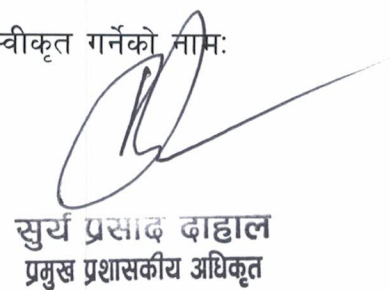 स्वीकृत गर्नेको नाम:
सुर्य प्रसाद दाहाल
प्रमुख प्रशासकीय अधिकृत